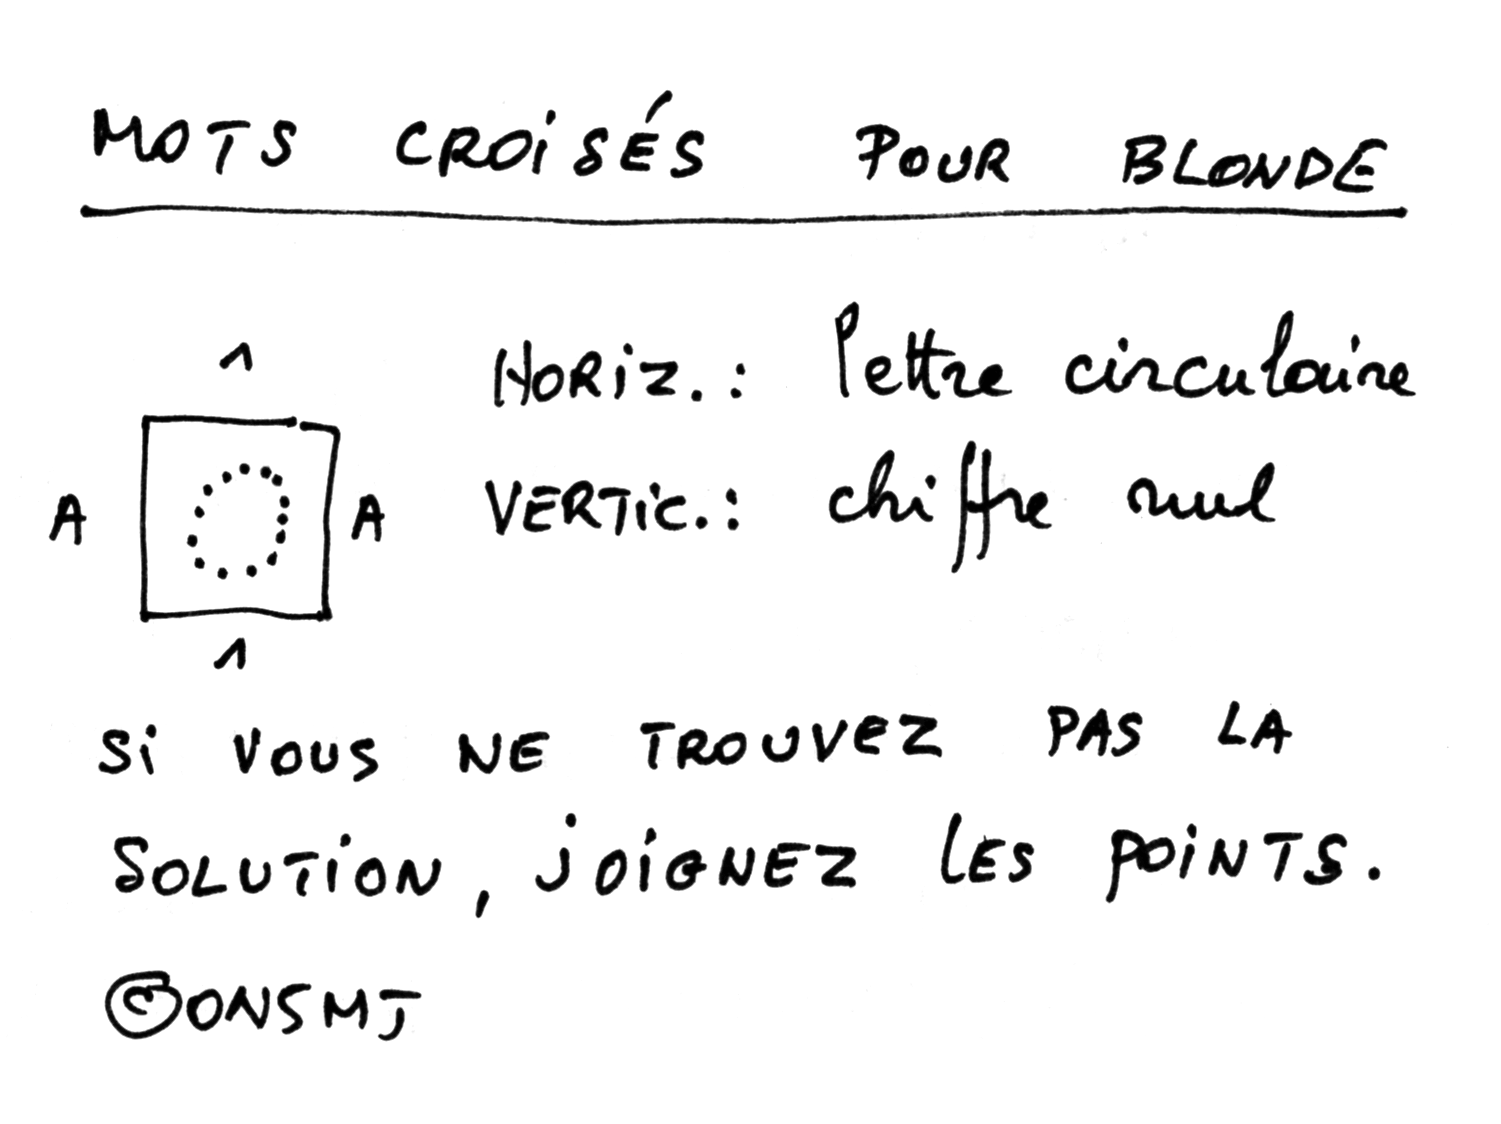 MOTS CROISÉS POUR BLONDE
1
HORIZ.: lettre circulaire
A A
VERTIC.: chiffre nul
1
Si VOUS NE TROUVEZ PAS LA
SOLUTION, JOIGNEZ LES POINTS.
©ONSMJ